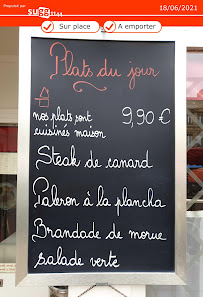 Proposé par
18/06/2021
Sur place
A emporter
Plats du jour
nos plats sont
cuisinés maison
9,90 €
Steak de canard
Paleron à la plancha
Brandade de morue
salade verte